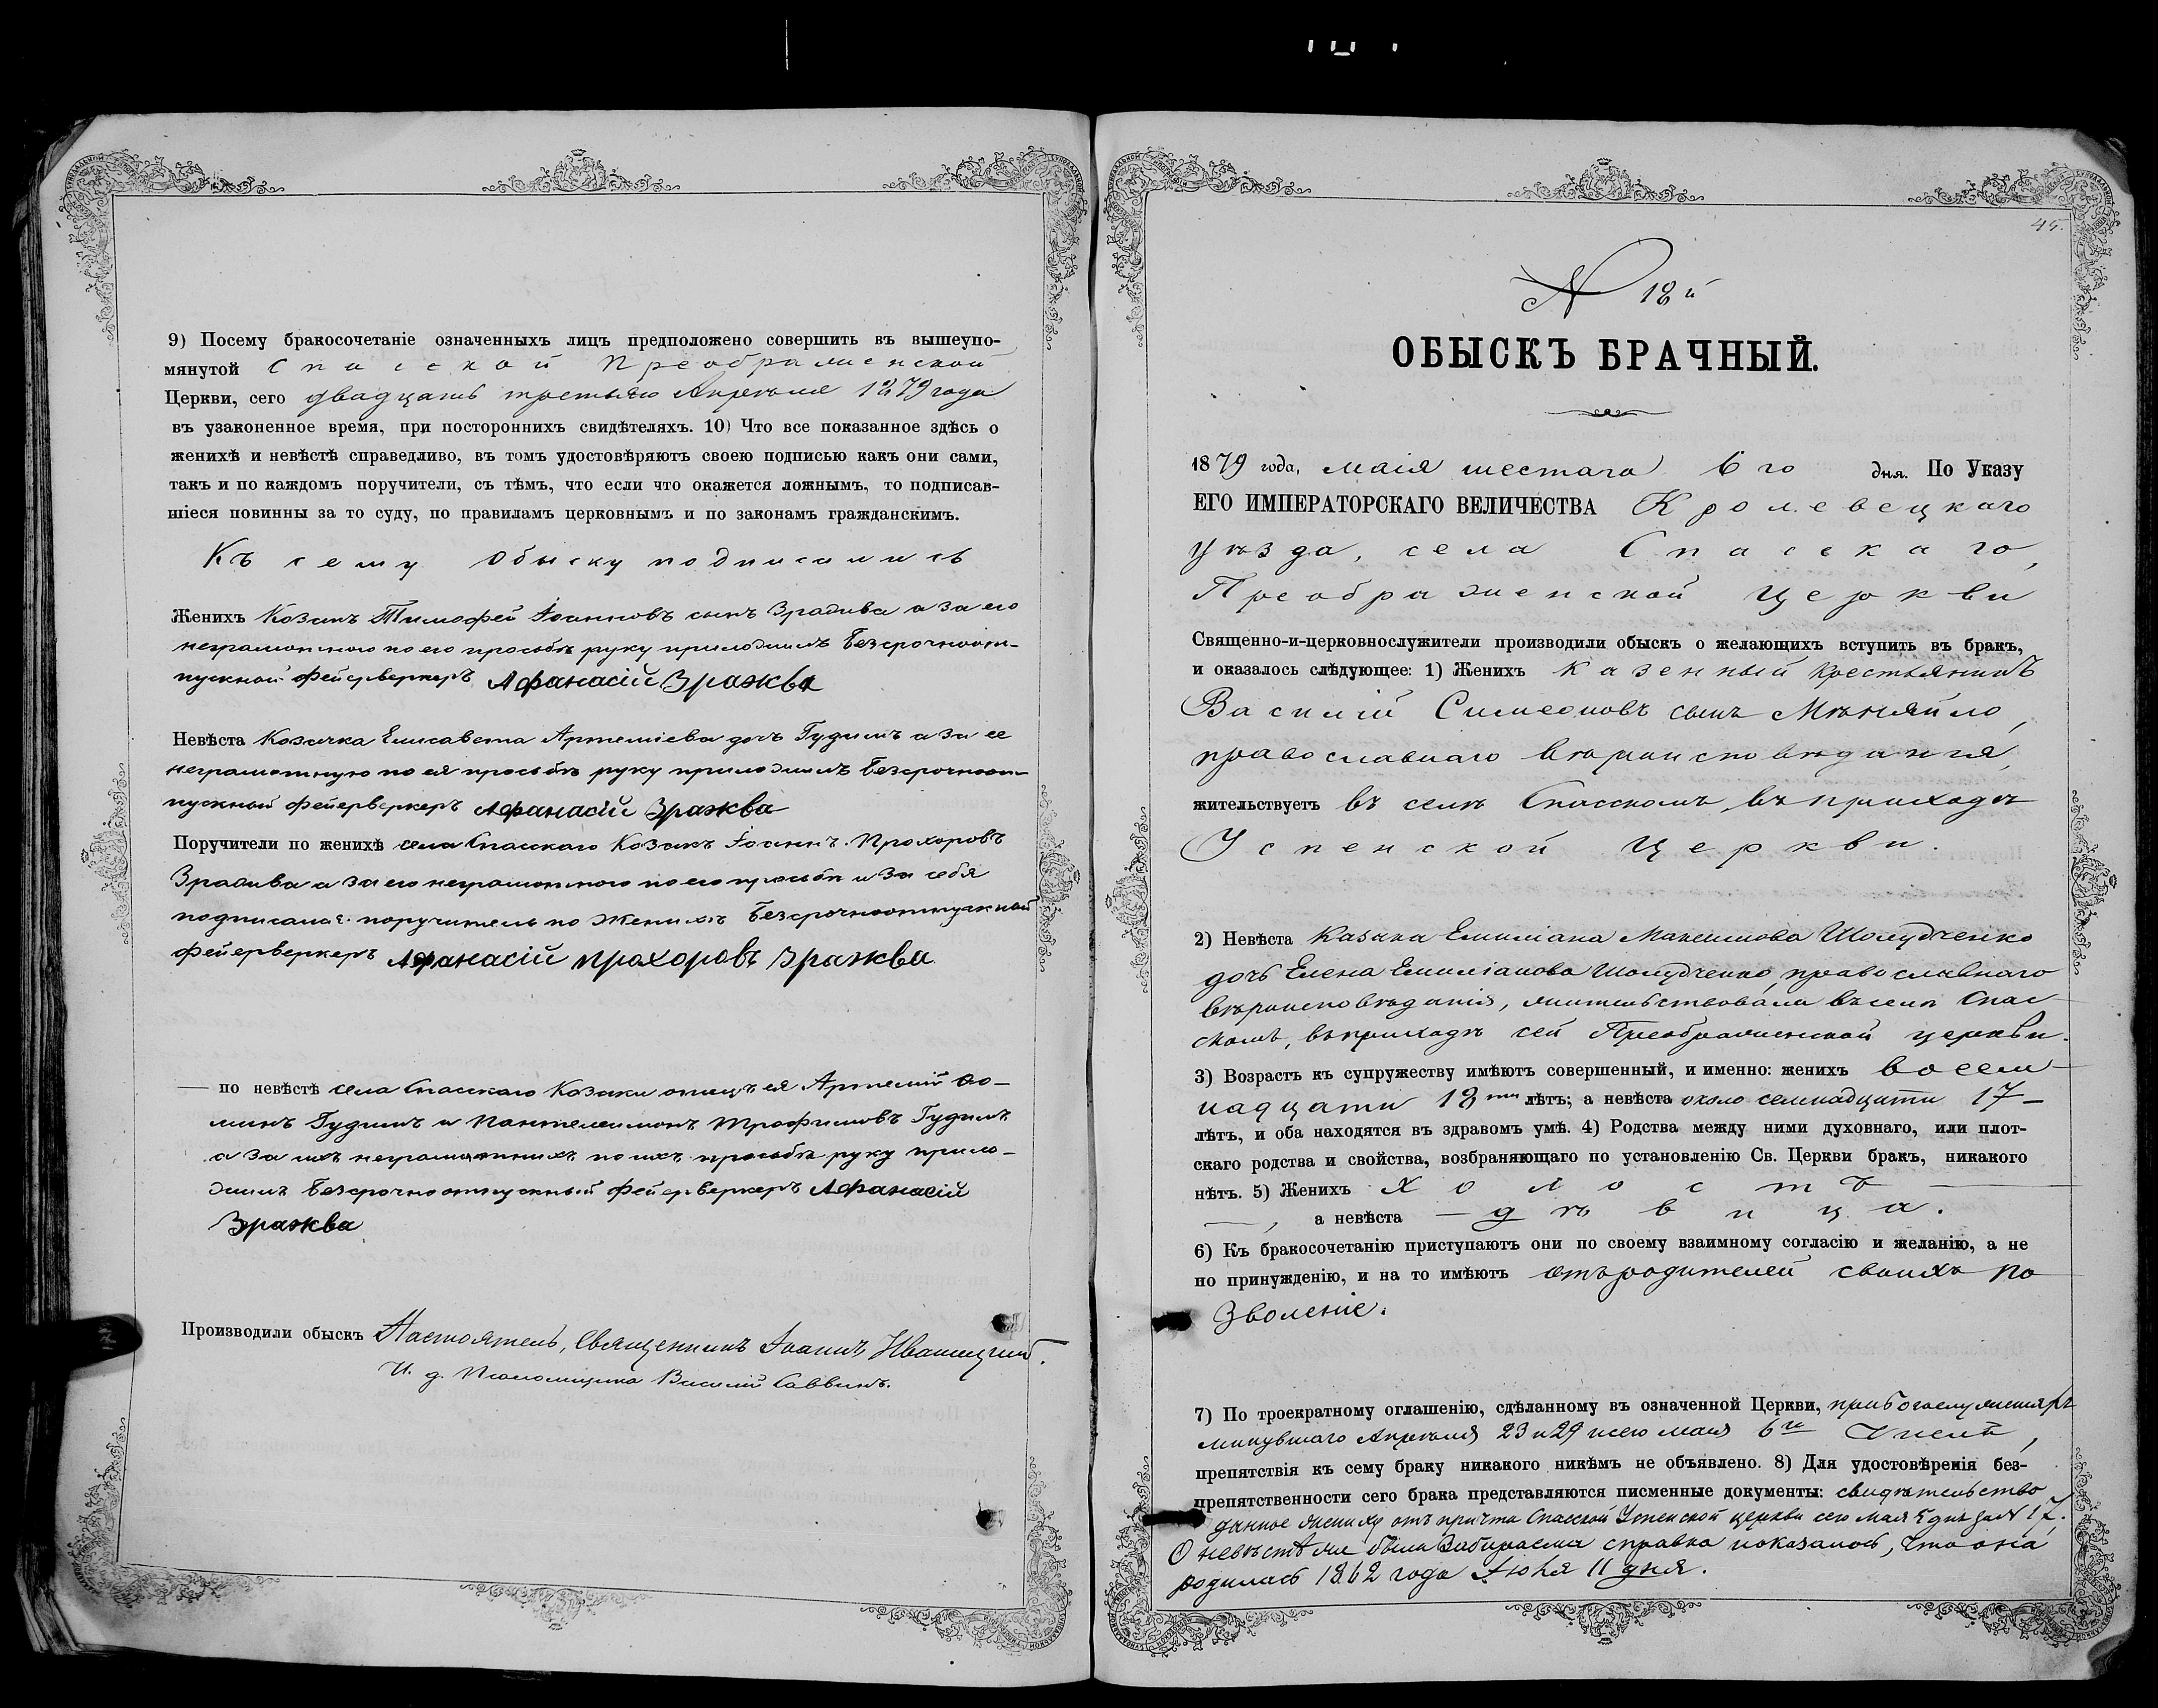 9) Посему бракосочетаніе означенныхъ лицъ предположено совершить въ вышеупо-
мянутой Спасской Преображенской
Церкви, сего двадцать третьяго Апрѣля 1879 года
въ узаконенное время, при постороннихъ свидѣтеляхъ. 10) Что все показанное здѣсь о
женихѣ и невѣстѣ справедливо, въ томъ удостовѣряютъ своею подписью какъ они сами,
такъ и по каждомъ поручители, съ тѣмъ, что если что окажется ложнымъ, то подписав-
шіеся повинны за то суду, по правиламъ церковнымъ и по законамъ гражданскимъ.
Къ сему обыску подписались
Женихъ Козакъ Тимофей Іоанновъ сынъ Зражива а за его
неграмотного по его прозьбѣ руку приложилъ безсрочноот-
пускной фейерверкеръ Афанасій Зражва
Невѣста Козачка Елисавета Артеміева дочь Гудимъ а за ее
неграмотную по ея прозьбѣ руку приложилъ безсрочноот-
пускной фейерверкеръ Афанасій Зражва
Поручители по женихѣ села Спасскаго Козакъ Іоаннъ Прохоровъ
Зражива а за его неграмотного по его прозьбѣ и за себя
подписался поручитель по женихѣ безсрочноотпускной
фейерверкеръ Афанасій прохоровъ Зражва
— по невѣстѣ села Спасскаго Козаки отецъ ея Артемій Фо-
минъ Гудимъ и Пантелеимонъ Трофимовъ Гудимъ
а за ихъ неграмотныхъ по ихъ прозьбѣ руку прило-
жилъ безсрочноотпускный фейерверкеръ Афанасій
Зражва
Производили обыскъ Настоятель, Священникъ Іоаннъ
И. д. Псаломщика Василій Саввинъ.
45.
N 18й
ОБЫСКЪ БРАЧНЫЙ.
1879 года, маія шестаго 6го дня. По Указу
ЕГО ИМПЕРАТОРСКАГО ВЕЛИЧЕСТВА Кролевецкаго
уѣзда, села Спасскаго,
Преображенской Церкви
Священно-и-церковнослужители производили обыскъ о желающихъ вступить въ бракъ,
и оказалось слѣдующее: 1) Женихъ казенный крестьянинъ
Василій Симеоновъ сынъ Мѣняйло,
православнаго вѣроисповѣданія,
жительствуетъ въ селѣ Спасскомъ, въ приходѣ
Успенской Церкви.
2) Невѣста казака Емиліана Максимова Шолудченко
дочь Елена Емиліанова Шолудченко, православнаго
вѣроисповѣданія, жительствовала въ селѣ Спас-
скомъ, въ приходѣ сей Преображенской церкви.
3) Возрастъ къ супружеству имѣютъ совершенный, и именно: женихъ восем-
надцати 18ти лѣтъ; а невѣста около семнадцати 17-
лѣтъ, и оба находятся въ здравомъ умѣ. 4) Родства между ними духовнаго, или плот-
скаго родства и свойства, возбраняющаго по установленію Св. Церкви бракъ, никакого
нѣтъ. 5) Женихъ холостъ —
—, а невѣста — дѣвица.
6) Къ бракосочетанію приступаютъ они по своему взаимному согласію и желанію, а не
по принужденію, и на то имѣютъ отъ родителей своихъ по
зволеніе.
7) По троекратному оглашенію, сдѣланному въ означенной Церкви,
минувшаго Апрѣля 23 и 29 и сего мая 6го числъ,
препятствія къ сему браку никакого никѣмъ не объявлено. 8) Для удостовѣренія без-
препятственности сего брака представляются писменные документы: свидѣтельство
данное жениху отъ причта Спасской Успенской церкви сего мая 5 дня за N 17.
О невѣстѣ же была забираема справка показалось, что она
родилась 1862 года Іюня 11 дня.